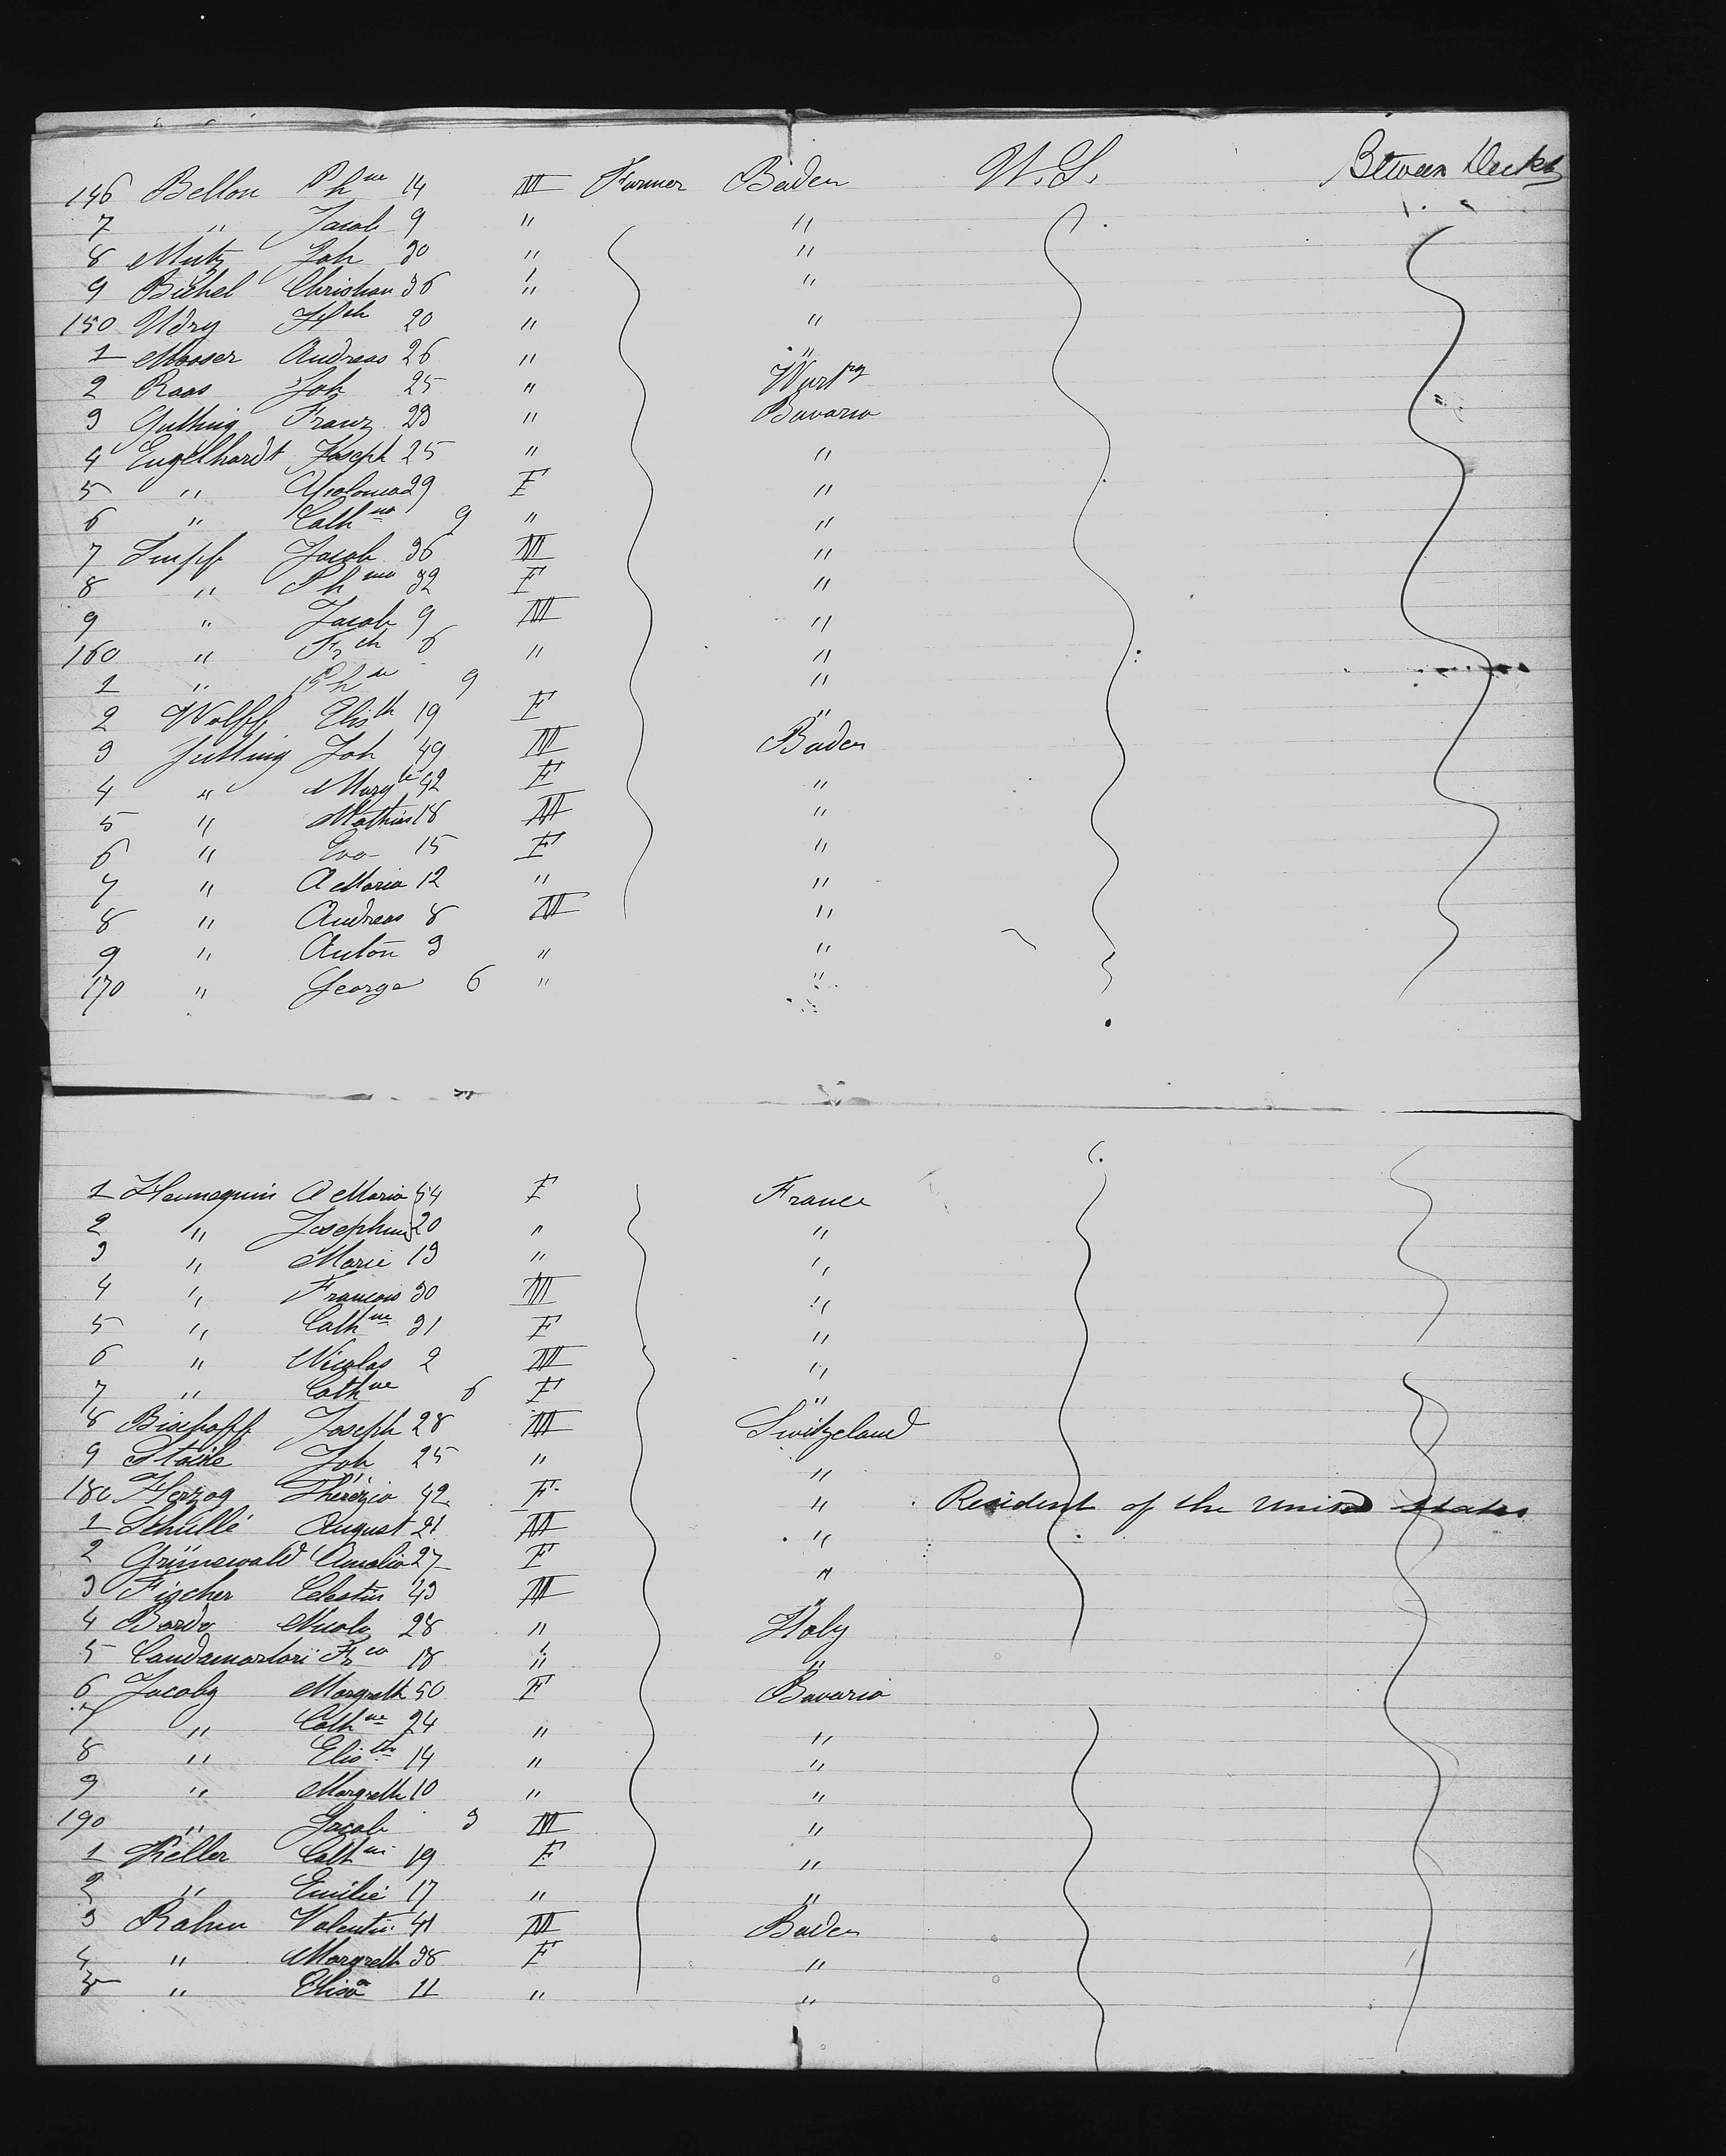 146 Bellon Phne 14 M Farmer Baden U.S. Btween Decks
7 " Jacob 9 " "
8 Mutz Joh 30 " "
9 Bichel Christian 36 " "
150 Udry Frdch 20 " "
1 Mooser Andreas 26 " "
2 Raas Joh 25 " Wurtbg
3 Guthing Franz 23 " Bavaria
4 Engelhardt Joseph 25 " "
5 " Apolonia 29 F "
6 " Cathna 9 " "
7 Jacob 36 M "
8 " 32 F "
9 " Jacob 9 M "
160 " Frch 6 " "
1 " 9 " "
2 Wolff Elisth 19 F "
3 Gutting Joh 49 M Baden
4 " Margth 42 F "
5 " Mathias 18 M "
6 " Eva 15 F "
7 " A Maria 12 " "
8 " Andreas 8 M "
9 " Anton 3 " "
170 " George 6 " "
1 Hennequin A Maria 54 F France
2 " Josephine 20 " "
3 " Marie 13 " "
4 " Francois 30 M "
5 " Cathne 31 F "
6 " Nicolas 2 M "
7 " Cathne 6 F "
8 Bischoff Joseph 28 M Switzeland
9 Joh 25 " "
180 Herzog Therezia 42 F " Resident of the United States
1 Schullé August 21 M "
2 Grünewald Amalia 27 F "
3 Fischer Celestin 43 M "
4 Bordo Nicola 28 " Italy
5 Frco 18 " "
6 Jacoby Margreth 50 F Bavaria
7 " Cathne 24 " "
8 " Elisth 14 " "
9 " Margreth 10 " "
190 " Jacob 3 M "
1 Keller Cathne 19 F "
2 " Emilie 17 " "
3 Rahm Valentin 41 M Baden
4 " Margreth 38 F "
5 " Elisa 11 " "